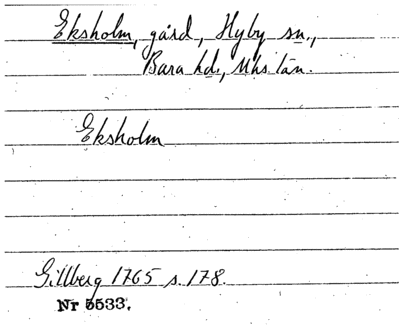 Eksholm, gård, Hyby sn.,
Bara hd., Mhs. län.
Eksholm
Gillberg 1765 s. 178.
Nr 5533.